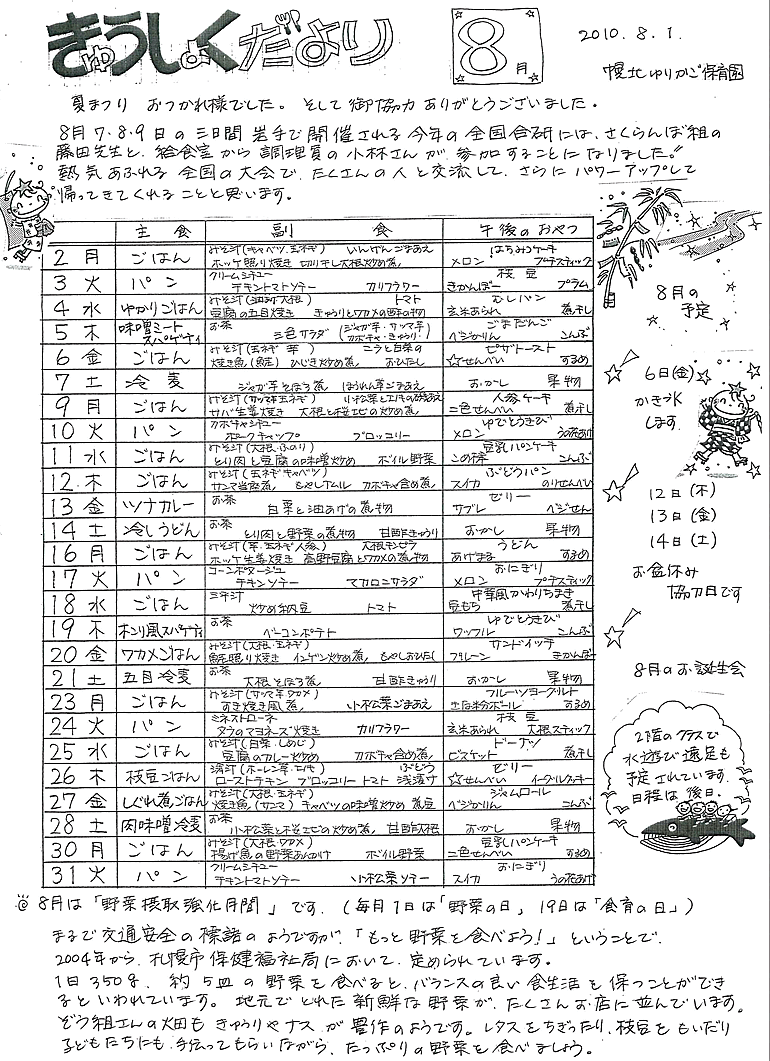 きゅうしょくだより
8月
2010.8.1.
幌北ゆりかご保育園
夏まつり おつかれ様でした。そして御協力ありがとうございました。
8月7・8・9日の三日間岩手で開催される今年の全国合研には、さくらんぼ組の
藤田先生と、給食室から調理員の小林さんが、参加することになりました!!
熱気あふれる全国の大会で、たくさんの人と交流して、さらにパワーアップして
帰ってきてくれることと思います。
主食 副食 午後のおやつ
2 月 ごはん みそ汁(キャベツ、玉ネギ) いんげんごまあえ はちみつケーキ
ホッケ照り焼き 切り干し大根炒め煮 メロン プチスティック
3 火 パン クリームシチュー 枝豆
チキントマトソテー カリフラワー きかんぼー プラム
4 水 ゆかりごはん トマト むしパン
豆腐の五目焼き きゅうりとワカメの酢の物 玄米あられ 煮干し
5 木 味噌ミートスパゲティ お茶 ごまだんご
三色サラダ (ジャガ芋・サツマ芋 カボチャ・きゅうり) ベジかりん こんぶ
6 金 ごはん みそ汁(玉ネギ 芋) ニラと白菜の ピザトースト
焼き魚(鮭) ひじき炒め煮 おひたし ☆せんべい するめ
7 土 冷麦 ジャガ芋とほろ煮 ほうれん草ごまあえ おかし 果物
9 月 ごはん 人参ケーキ
サバ生姜焼き 大根と桜エビの炒め煮 二色せんべい 煮干し
10 火 パン カボチャシチュー ゆでとうきび
ポークチャップ ブロッコリー メロン うの花あげ
11 水 ごはん みそ汁(大根・ふのり) 豆乳パンケーキ
とり肉と豆腐の味噌炒め ボイル野菜 この棒 こんぶ
12 木 ごはん みそ汁(玉ネギキャベツ) ぶどうパン
もやしナムル カボチャ含め煮 スイカ のりせんべい
13 金 ツナカレー お茶 ゼリー
白菜と油あげの煮物 サブレ ベジせん
14 土 冷しうどん お茶
とり肉と野菜の煮物 甘酢きゅうり おかし 果物
16 月 ごはん みそ汁(芋・玉ネギ人参) 大根キンピラ うどん
ホッケ生姜焼き 高野豆腐とワカメの煮物 あげまる するめ
17 火 パン コーンポタージュ おにぎり
チキンソテー マカロニサラダ メロン プチスティック
18 水 ごはん 三平汁 中華風かわりちまき
炒め納豆 トマト 豆もち 煮干し
19 木 ナポリ風スパゲティ お茶 ゆでとうきび
ベーコンポテト ワッフル こんぶ
20 金 ワカメごはん みそ汁(大根・玉ネギ) サンドイッチ
鮭照り焼き インゲン炒め煮 もやしおひたし プルーン きかんぼー
21 土 五目冷麦 お茶
大根とほろ煮 甘酢きゅうり おかし 果物
23 月 ごはん みそ汁(サツマ芋ワカメ) フルーツヨーグルト
すき焼き風煮 小松菜ごまあえ きな粉ボール するめ
24 火 パン ミネストローネ 枝豆
タラのマヨネーズ焼き カリフラワー 玄米あられ 大根スティック
25 水 ごはん みそ汁(白菜・しめじ) ドーナツ
豆腐のカレー炒め カボチャ含め煮 ビスケット 煮干し
26 木 枝豆ごはん ぶどう ゼリー
ローストチキン ブロッコリー トマト 浅漬け ☆せんべい イーグルクッキー
27 金 しぐれ煮ごはん みそ汁(大根・玉ネギ) ジャムロール
焼き魚(サンマ) キャベツの味噌炒め 煮豆 ベジかりん こんぶ
28 土 肉味噌冷麦 お茶
小松菜と桜エビの炒め煮 甘酢大根 おかし 果物
30 月 ごはん みそ汁(大根・ワカメ) 豆乳パンケーキ
揚げ魚の野菜あんかけ ボイル野菜 二色せんべい するめ
31 火 パン クリームシチュー おにぎり
チキントマトソテー 小松菜ソテー スイカ うの花あげ
8月の
予定
6日(金)
かき氷
します。
12日(木)
13日(金)
14日(土)
お盆休み
協力日です
8月のお誕生会
2階のクラスで
水遊び遠足も
予定されています。
日程は後日。
8月は「野菜摂取強化月間」です。(毎月1日は「野菜の日」19日は「食育の日」)
まるで交通安全の標語のようですが、「もっと野菜を食べよう!」ということで、
2004年から、札幌市保健福祉局において、定められています。
1日350g、約5皿の野菜を食べると、バランスの良い食生活を保つことができ
るといわれています。地元でとれた新鮮な野菜が、たくさんお店に並んでいます。
ぞう組さんの畑もきゅうりやナスが豊作のようです。レタスをちぎったり、枝豆をもいだり
子どもたちにも、手伝ってもらいながら、たっぷりの野菜を食べましょう。